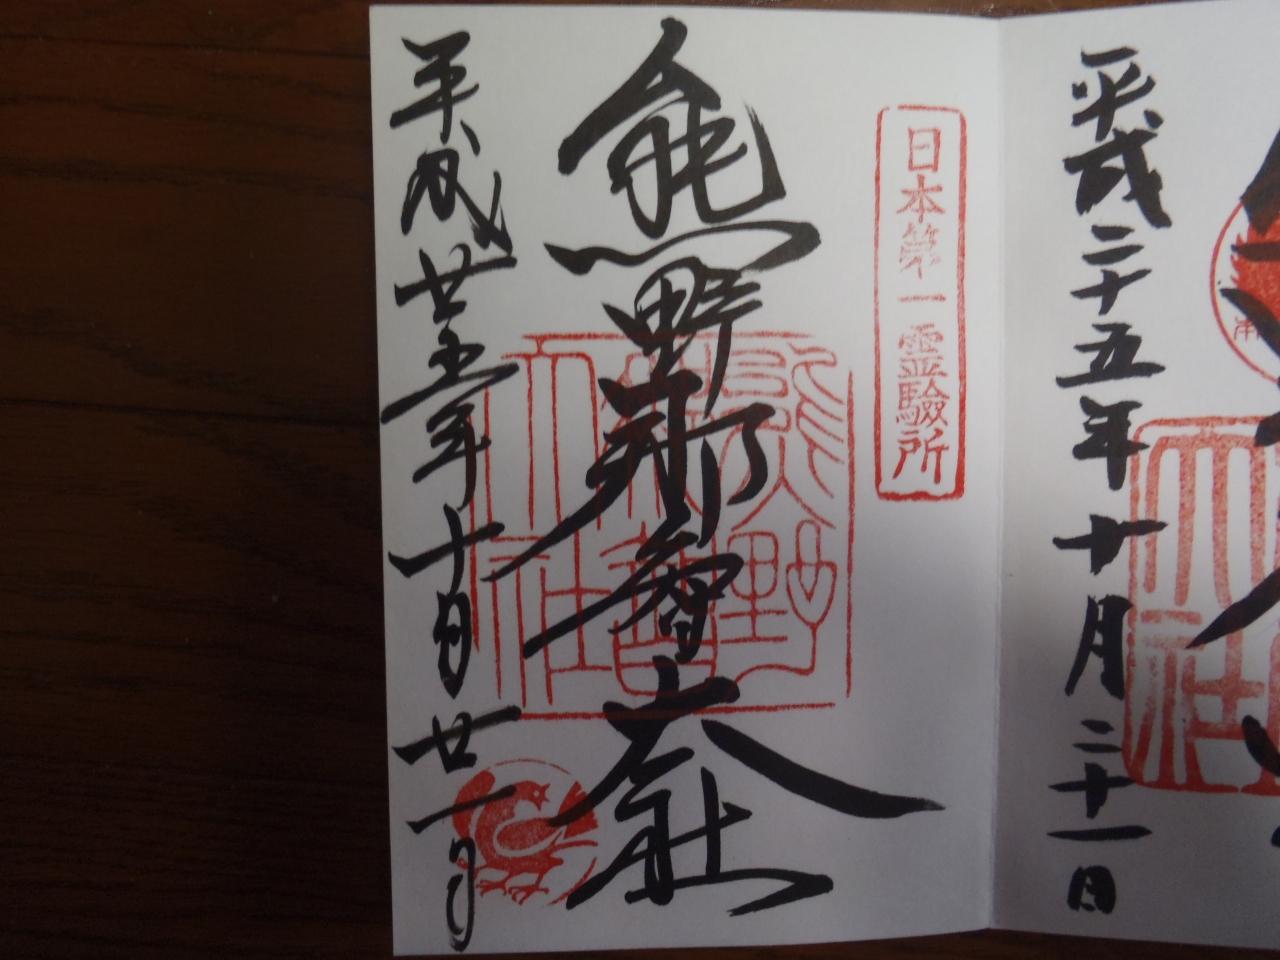 平成二十五年十月二十一日
日本第一霊験所
熊野那智大社
平成廿五年十月廿一日
熊野
大社
大社